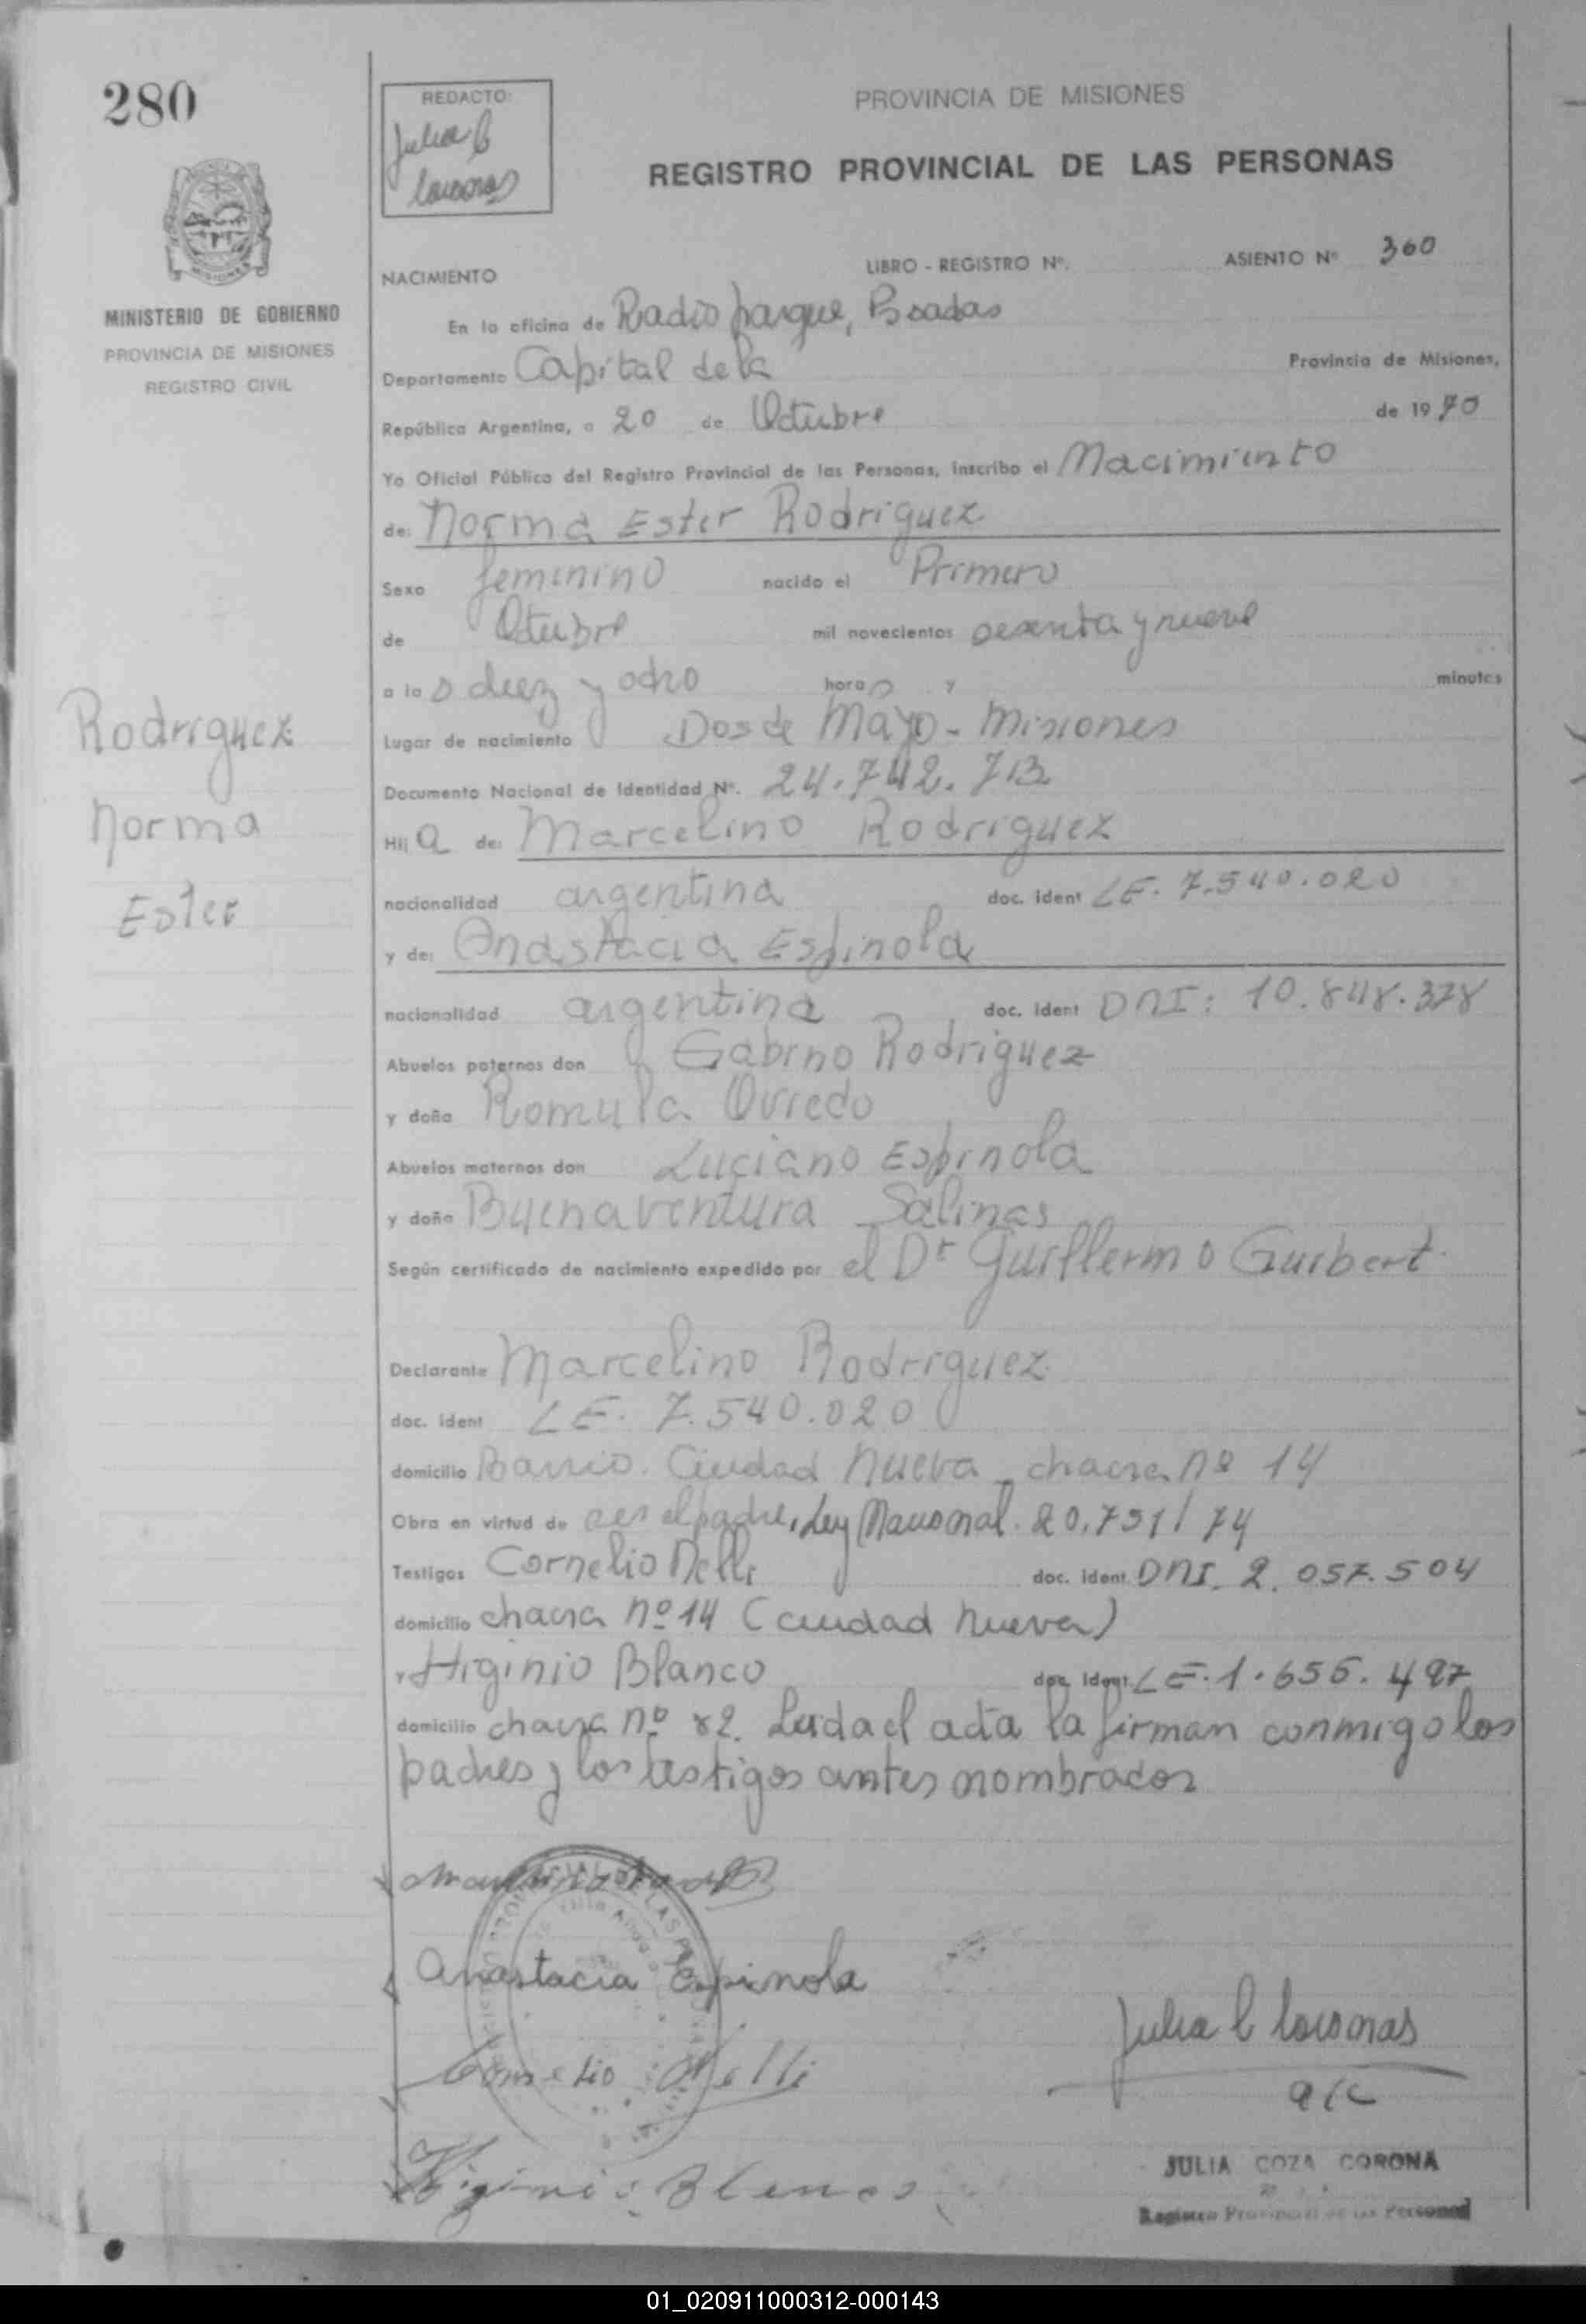 280
REDACTO:
Julia C
PROVINCIA DE MISIONES
REGISTRO PROVINCIAL DE LAS PERSONAS
MISIONES
MINISTERIO DE GOBIERNO
PROVINCIA DE MISIONES
REGISTRO CIVIL
NACIMIENTO LIBRO - REGISTRO Nº. ASIENTO Nº 360
En la oficina de Radio parque, Posadas
Departamento Capital de la Provincia de Misiones,
República Argentina, a 20 de Octubre de 19
Yo Oficial Público del Registro Provincial de las Personas, inscribo el Nacimiento
de: Norma Ester Rodriguez
Sexo femenino nacido el Primero
de Octubre mil novecientos sesenta y nueve
a las diez y ocho horas y minutos
Lugar de nacimiento Dos de Mayo - Misiones
Documento Nacional de Identidad Nº. 24.742.713
Hija de: Marcelino Rodriguez
Rodriguez
Norma
Ester
nacionalidad argentina doc. ident LE. 7.540.020
y de: Anastacia Espinola
nacionalidad argentina doc. ident DNI: 10.848.378
Abuelos paternos don Gabino Rodriguez
y doña Romula Oviedo
Abuelos maternos don Luciano Espinola
y doña Buenaventura Salinas
Según certificado de nacimiento expedido por el Dr Guillermo Guibert
Declarante Marcelino Rodriguez
doc. ident LE. 7.540.020
domicilio Barrio. Ciudad Nueva chacra nº 14
Obra en virtud de ser el padre, Ley Nacional. 20.751/74
Testigos Cornelio Nelli doc. ident. DNI. 2.057.504
domicilio chacra nº 14 (ciudad nueva)
y Higinio Blanco doc. ident LE. 1.655.497
domicilio chacra nº 82. Leida el acta la firman conmigo los
padres y los testigos antes nombrados
Anastacia Espinola
Cornelio Nelli
Higinio Blanco
Julia C
a/c
JULIA COZA CORONA
Registro Provincial de las Personas
01_020911000312-000143